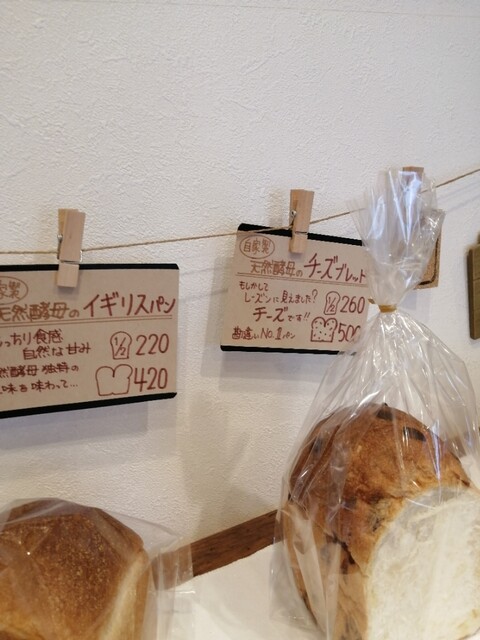 家製
天然酵母の イギリスパン
っちり食感
自然な甘み
½ 220
然酵母独特の
味を味わって...
420
自家製
天然酵母の チーズブレッド
もしかして
レーズンに見えました?
½ 260
チーズです!!
勘違いNo.1パン
500